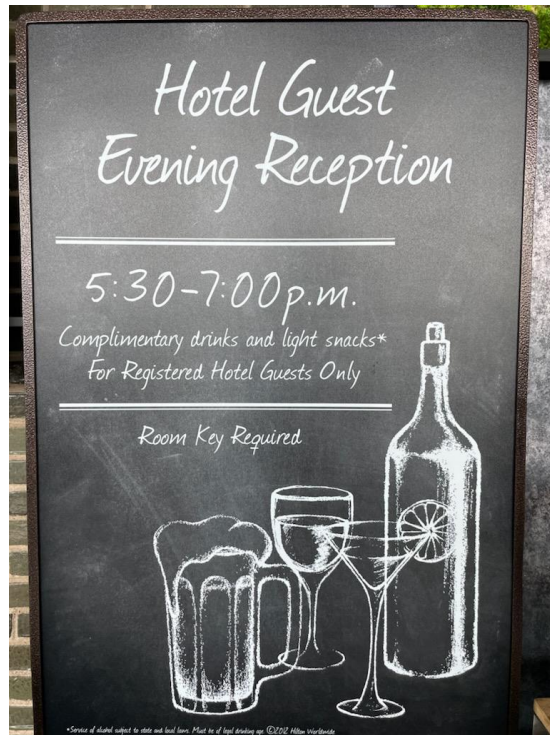 Hotel Guest
Evening Reception
5:30-7:00p.m.
Complimentary drinks and light snacks*
For Registered Hotel Guests Only
Room Key Required
*Service of alcohol subject to state and local laws. Must be of legal drinking age. ©2012 Hilton Worldwide